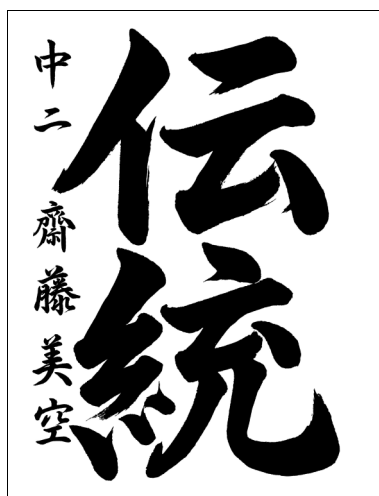 伝統
中二 齋藤美空